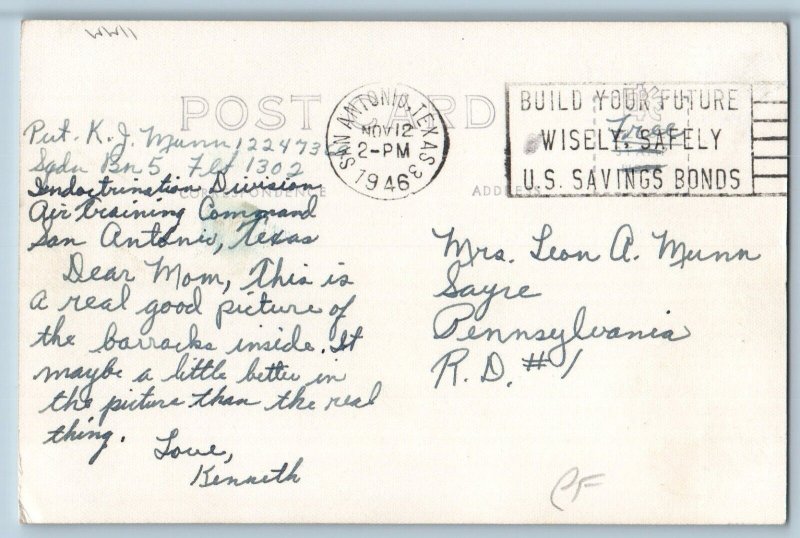 POST CARD
CORRESPONDENCE
ADDRESS
Pvt. K. J. Munn 122473
Sqdn Bn 5 Flt 1302
Indoctrination Division
Air Training Command
San Antonio, Texas
Dear Mom, This is
a real good picture of
the barracks inside. It
maybe a little better in
the picture than the real
thing.
Love,
Kenneth
SAN ANTONIO, TEXAS 3
NOV 12
2-PM
1946
BUILD YOUR FUTURE
WISELY, SAFELY
U.S. SAVINGS BONDS
Free
Mrs. Leon A. Munn
Sayre
Pennsylvania
R.D. #1